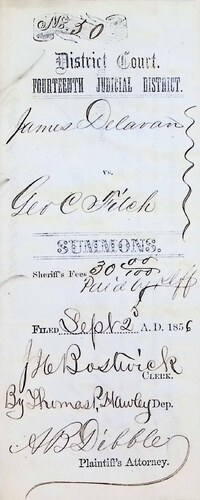 No. 50
District Court.
FOURTEENTH JUDICIAL DISTRICT.
James Delavan
vs.
Geo C Fitch
SUMMONS.
Sheriff's Fees 30 00/100
Paid by Plff
FILED Sept 2 A. D. 1856
J H Bostwick
CLERK.
By Thomas P. Hawley Dep.
A B Dibble
Plaintiff's Attorney.